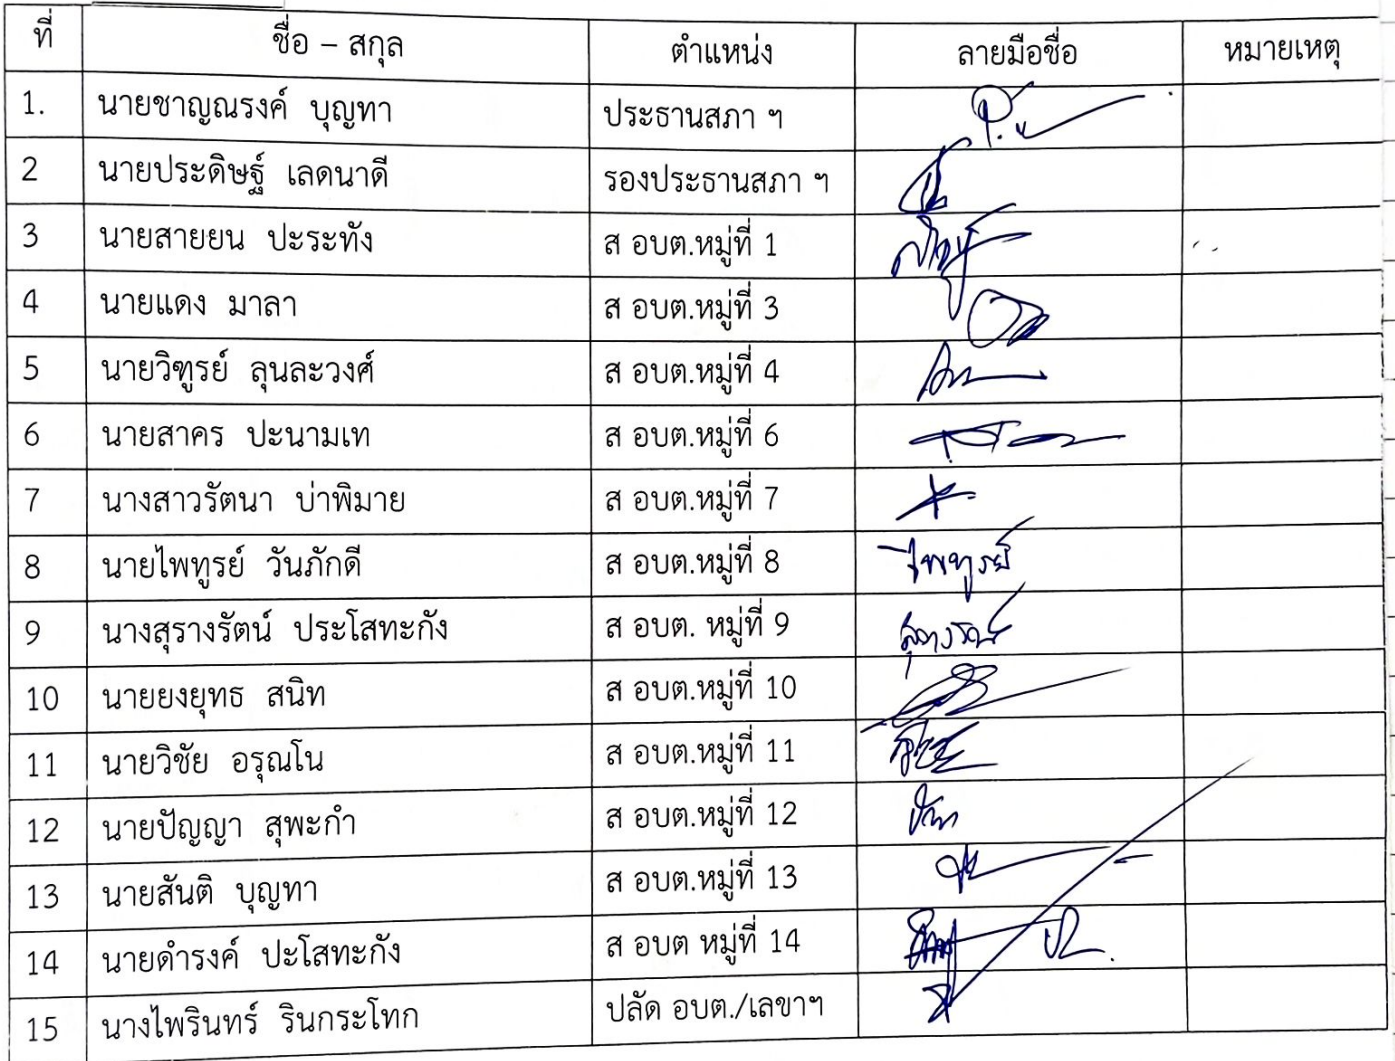 ที่ ชื่อ – สกุล ตำแหน่ง ลายมือชื่อ หมายเหตุ
1. นายชาญณรงค์ บุญทา ประธานสภา ฯ
2 นายประดิษฐ์ เลดนาดี รองประธานสภา ฯ
3 นายสายยน ปะระทัง ส อบต.หมู่ที่ 1
4 นายแดง มาลา ส อบต.หมู่ที่ 3
5 นายวิฑูรย์ ลุนละวงศ์ ส อบต.หมู่ที่ 4
6 นายสาคร ปะนามเท ส อบต.หมู่ที่ 6
7 นางสาวรัตนา บ่าพิมาย ส อบต.หมู่ที่ 7
8 นายไพทูรย์ วันภักดี ส อบต.หมู่ที่ 8 ไพทูรย์
9 นางสุรางรัตน์ ประโสทะกัง ส อบต. หมู่ที่ 9 สุรางรัตน์
10 นายยงยุทธ สนิท ส อบต.หมู่ที่ 10
11 นายวิชัย อรุณโน ส อบต.หมู่ที่ 11
12 นายปัญญา สุพะกำ ส อบต.หมู่ที่ 12
13 นายสันติ บุญทา ส อบต.หมู่ที่ 13
14 นายดำรงค์ ปะโสทะกัง ส อบต หมู่ที่ 14
15 นางไพรินทร์ รินกระโทก ปลัด อบต./เลขาฯ